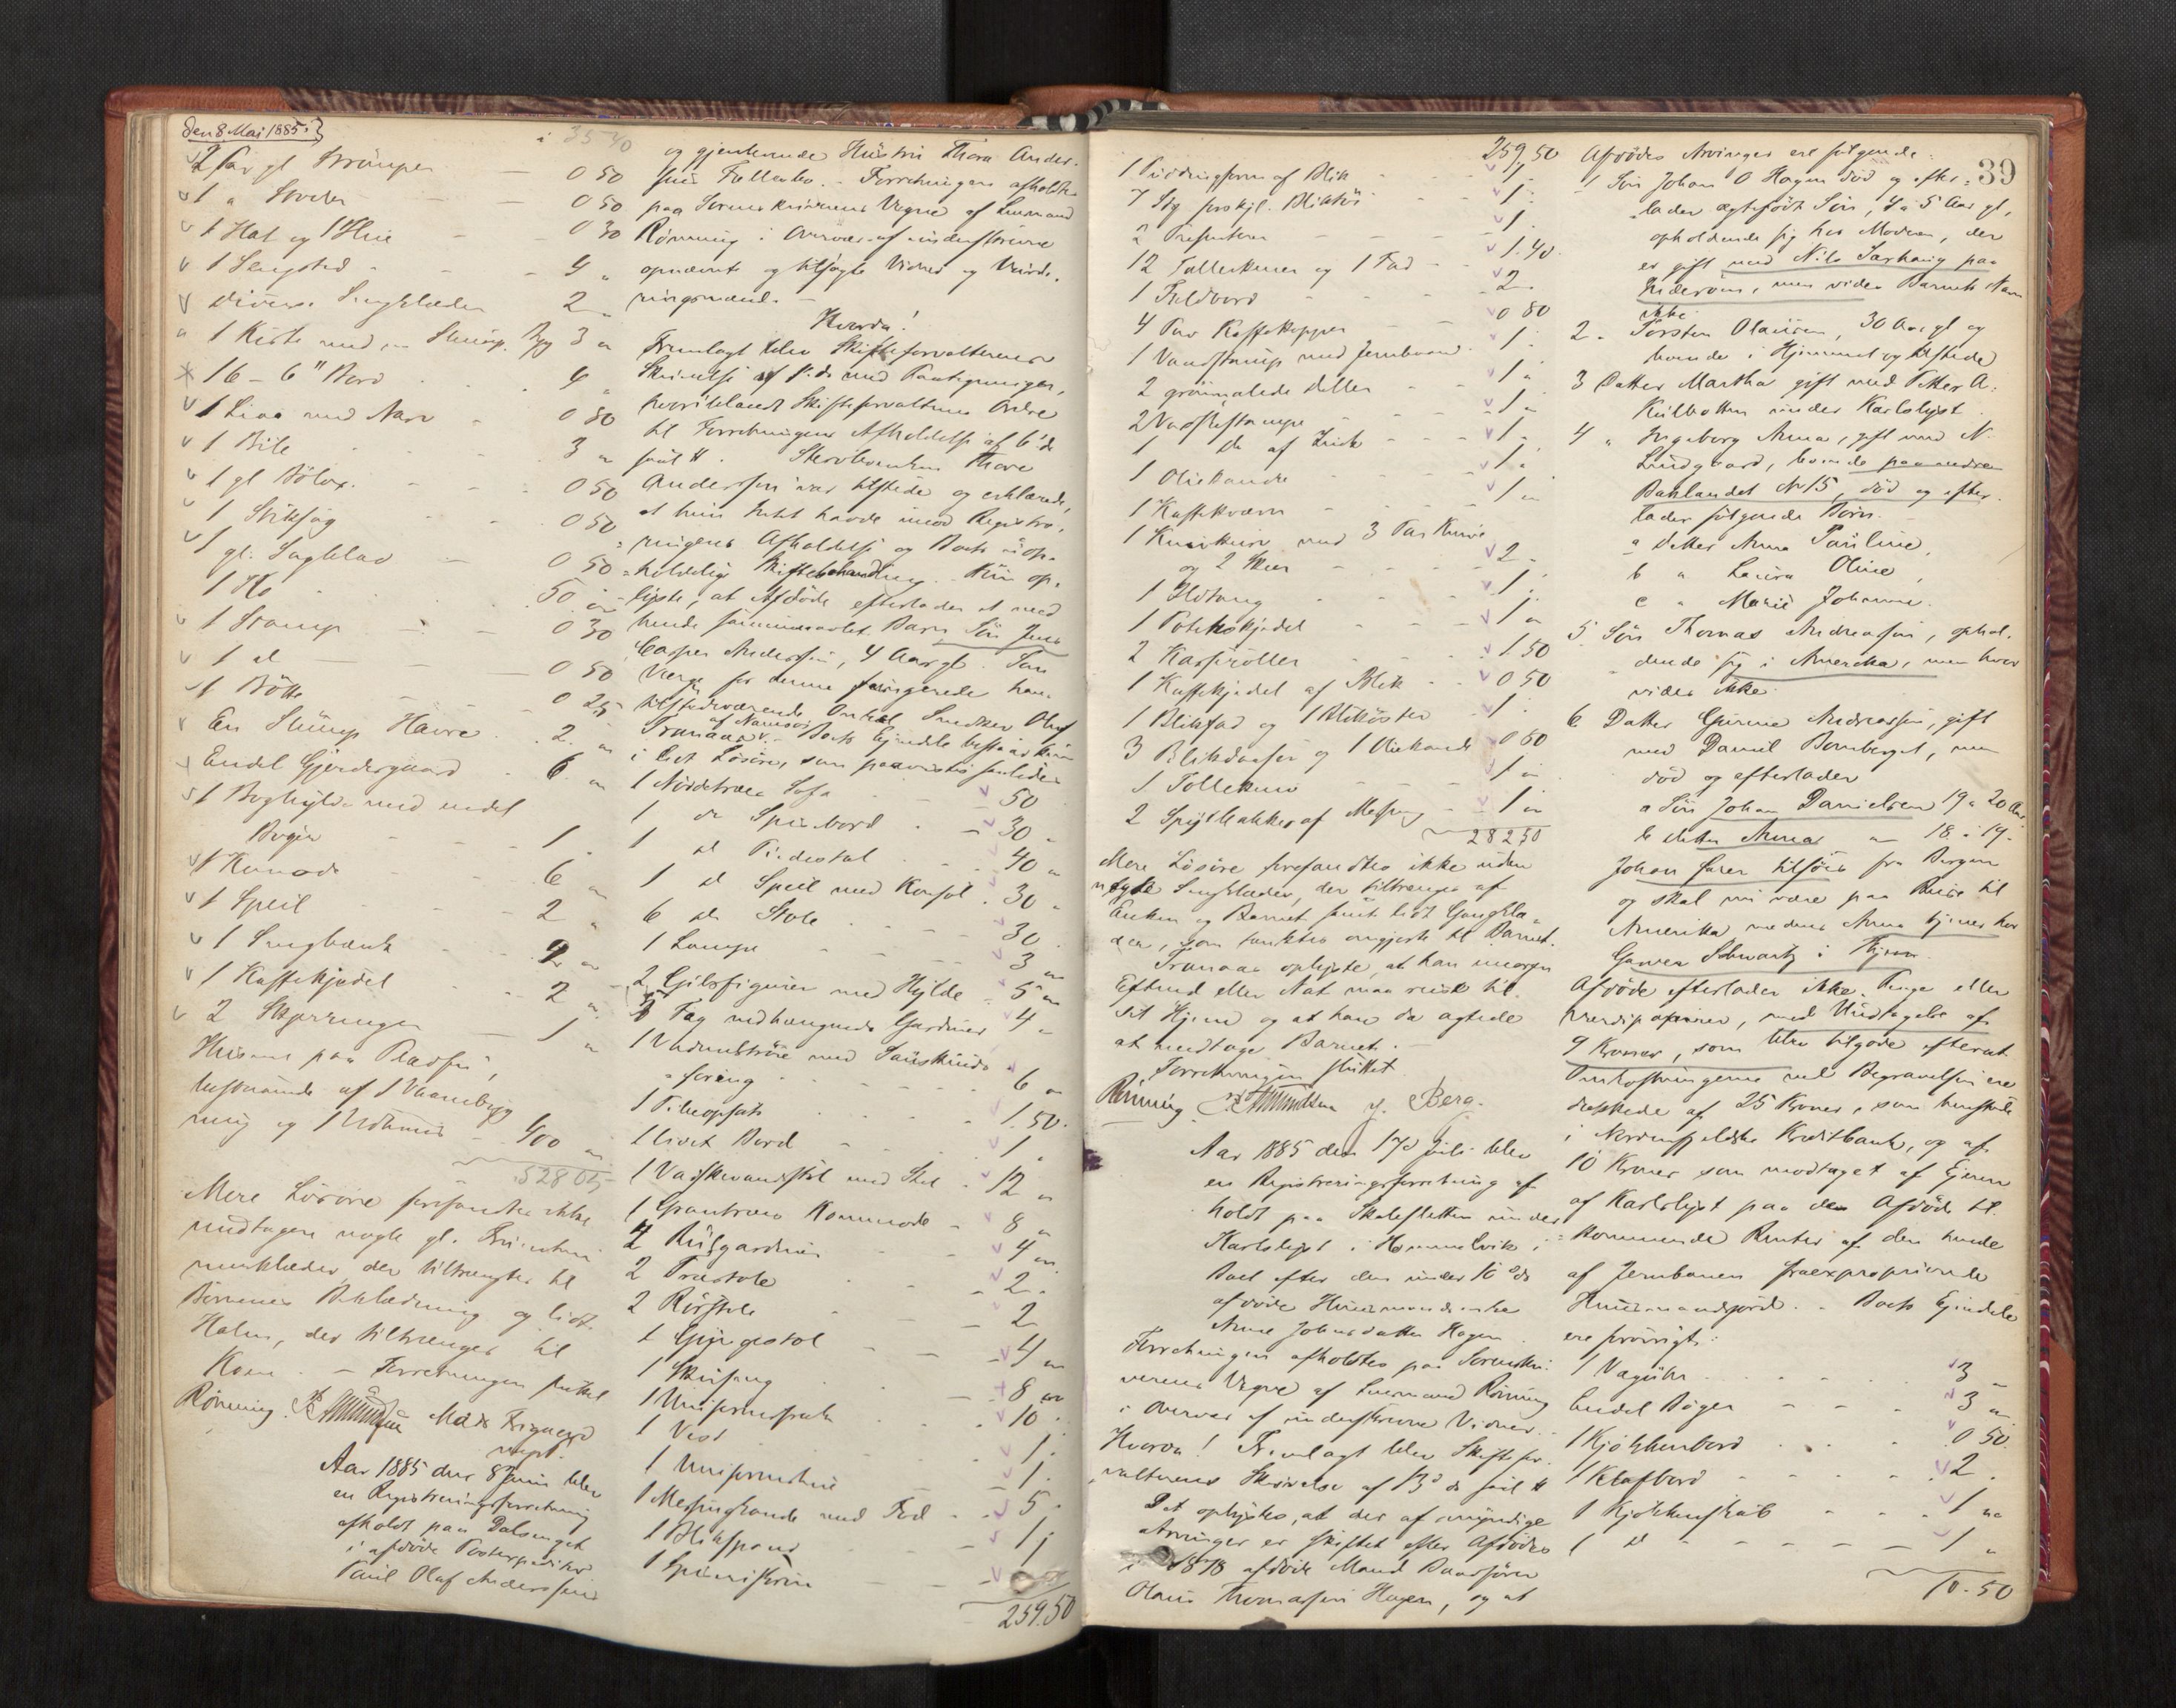 den 8 Mai 1885.
35 40
2 Par gl Strømper — 0 50
1 " Skoder — 0 50
1 Hat og 1 Hue — 0 30
1 Sengsted — 4 "
diverse Sengklæder 2 "
1 Kiste med en Slump Byg 3 "
16 – 6" Bord 4 "
1 Liaa med Narv 0 80
1 Bile 3 "
1 gl Bølox 0 50
1 Stiksag 0 50
1 gl. Sagblad 0 50
1 Ko 50 "
1 Stamp 0 30
1 d 0 50
1 Bøtte 0 25
En Slump Havre 2 "
Endel Gjerdesgaard 6 "
1 Boghylde med endel
Bøger 1 "
1 Komode 6 "
1 Speil 2 "
1 Sengbænk 2 "
1 Kaffekjedel 2 "
2 Skjæringer 1 "
Husene paa Pladsen,
bestaaende af 1 Vaanebyg
ning og 1 Udhuus 400 "
528 05
Mere Løsøre forefandtes ikke
undtagen nogle gl.
der tiltrængtes til
Børnenes Beklædning og lidt
Halm, der tiltrænges til
Koen. – Forretningen sluttet
Rønning.
Aar 1885 den 8 Juni blev
en Registreringsforretning
afholdt paa Dalsenget
i afdøde Postexpeditør
Paul Olaf Anderssens
og gjenlevende Hustru Thora Anders-
sens Fællesbo. – Forretningen afholdtes
paa Sorenskriverens Vegne af Lensmand
Rønning i Overvær af underskrevne
opnævnte og tilsagte Vidner og Vurde-
ringsmænd. –
Hvorda!
Fremlagt blev Skifteforvalterens
Skrivelse af f. ds med Paategninger,
hvoriblandt Skifteforvalterens Ordre
til Forretningens Afholdelse af 6' ds
saal # . Skovbetænkte Thora
Anderssen var tilstede og erklærede,
at hun Intet havde imod Registre-
ringens Afholdelse og Boets uop-
holdelig Skiftebehandling. Hun op-
lyste, at Afdøde efterlader et med
hende sammenavlet Barn Søn Jens
Casper Anderssen, 4 Aar gl. Som
Værge for denne fungerede han
tilstedeværende Onkel Snedker Oluf
Tranaas af Namsos. – Boets Eiendele bestaar kun
i lidt Løsøre, som paavistes saaledes
1 Nøddetræes Sofa 50
1 do Spisebord 30 "
1 d Piedestal 40 "
1 d Speil med Konsol 30 "
6 do Stole 30
1 Lampe 3 "
2 Gibsfigurer med Hylde 5 "
5 Fag nedhængende Gardiner 4 "
1 Vadmelstrøie med Saueskinds
foring 6 "
1 Theopsats 1.50.
1 livet Bord 1 "
1 Vaskevandstel med Stel 12 "
1 Grantræes Kommode 8 "
4 Rulgardiner 4 "
2 Træstole 2 "
2 Rørstole 2
1 Gyngestol 4 "
1 Skindseng 8 "
1 Uniformsfrak 10.
1 Vest 1.
1 Uniformshue 1.
1 Messingkande med Fad 5 "
1 Blikspand 1
1 Spanskrin
259.50
39
259,50
1 Puddingform af Blik 1 "
7 Stk forskjl. Bliktøi 1.
2 Presenter 1.
12 Tallerkener og 1 Fad 1.40.
1 Foldbord 2 "
4 Par Kaffekopper 0 80
1 Vandstamp med Jernbaand 1.
2 grønmalede Bøtter 1 "
2 Vaskestampe 1 "
1 do af Zink 1 "
1 Oliekande 1 "
1 Kaffekværn 1 "
1 Knivkurv med 3 Par Knive
og 2 Skeer 2 "
1 Ildtang 1.
1 Potekskjedel 1 "
2 Kasseroller 1.50
1 Kaffekjedel af Blik 0 50
1 Blikfad og 1 Blikøster 1.
3 Blikdaaser og 1 Oliekande 0 80
1 Tollekniv 1 "
2 Spytbakker af Messing 1 "
282,50
Mere Løsøre forefandtes ikke uden
nogle Sengklæder, der tiltrænges af
Enken og Barnet samt lidt Gangklæ-
der, som tænktes omgjort til Barnet.
Tranaas oplyste, at han imorgen
Eftmd eller Nat maa reise til
sit Hjem og at han da agtede
at medtage Barnet. –
Forretningen sluttet
Rønning J. Berg.
Aar 1885 den 17de Juli blev
en Registreringsforretning af
holdt paa Skaleslitten under
Karlslyst i Hommelvik i
Boet efter den under 10 ds
afdøde Huusmandsenke
Anne Johnsdatter Hagen.
Forretningen afholdtes paa Sorenskri-
verens Vegne af Lensmand Rønning
i Overvær af underskrevne Vidner.
Hvorda! Fremlagt blev Skiftefor-
valterens Skrivelse af 13' ds saal #
Det oplystes, at der af myndige
Arvinger er skiftet efter Afdødes
i 1878 afdøde Mand Baadfører
Olaus Thomassen Hagen, og at
Afdødes Arvinger ere følgende:
1 Søn Johan O Hagen død og efter-
lader ægtefødt Søn, 4 a 5 Aar gl,
opholdende sig hos Moderen, der
er gift med Nils Saxhaug paa
Inderøen, men vides Barnets Navn
ikke.
2 – Torsten Olaussen, 30 Aar gl og
boende i Hjemmet og tilstede
3 Datter Martha gift med Petter A.
Kulbotten under Karlslyst.
4 " Ingeborg Anna, gift med N.
Lundgaard, boende paa nedre
Baklandet No 15, død og efter-
lader følgende Børn.
a datter Anna Pauline,
b " Laura Oline,
c " Marie Johanne.
5 Søn Thomas Andreassen, ophol-
dende sig i Amerika, men hvor
vides ikke.
6 Datter Gurine Andreassen, gift
med Daniel Bomberget, men
død og efterlader
a Søn Johan Danielsen 19 a 20 Aar
b datter Anna – 18 a 19 –
Johan farer tilsøes fra Bergen
og skal nu være paa Reise til
Amerika medens Anna tjener hos
Garver Schwartz i Thjem.
Afdøde efterlader ikke Penge eller
Værdipapirer, med Undtagelse af
9 Kroner, som blev tilgode efterat
Omkostningerne ved Begravelsen ere
dækkede af 25 Kroner, som henstod
i Nordenfjeldske Kreditbank, og af
10 Kroner som modtaget af Eieren
af Karlslyst paa den Afdøde til-
kommende Renter af den hende
af Jernbanen fraexproprierede
Huusmandsjord. – Boets Eiendele
ere forøvrigt:
1 Vægúhr 3 "
Endel Bøger 3 "
1 Kjøkkenbord 0 50
1 Klafbord 2.
1 Kjøkkenskab 1 "
1 d 1 "
10.50